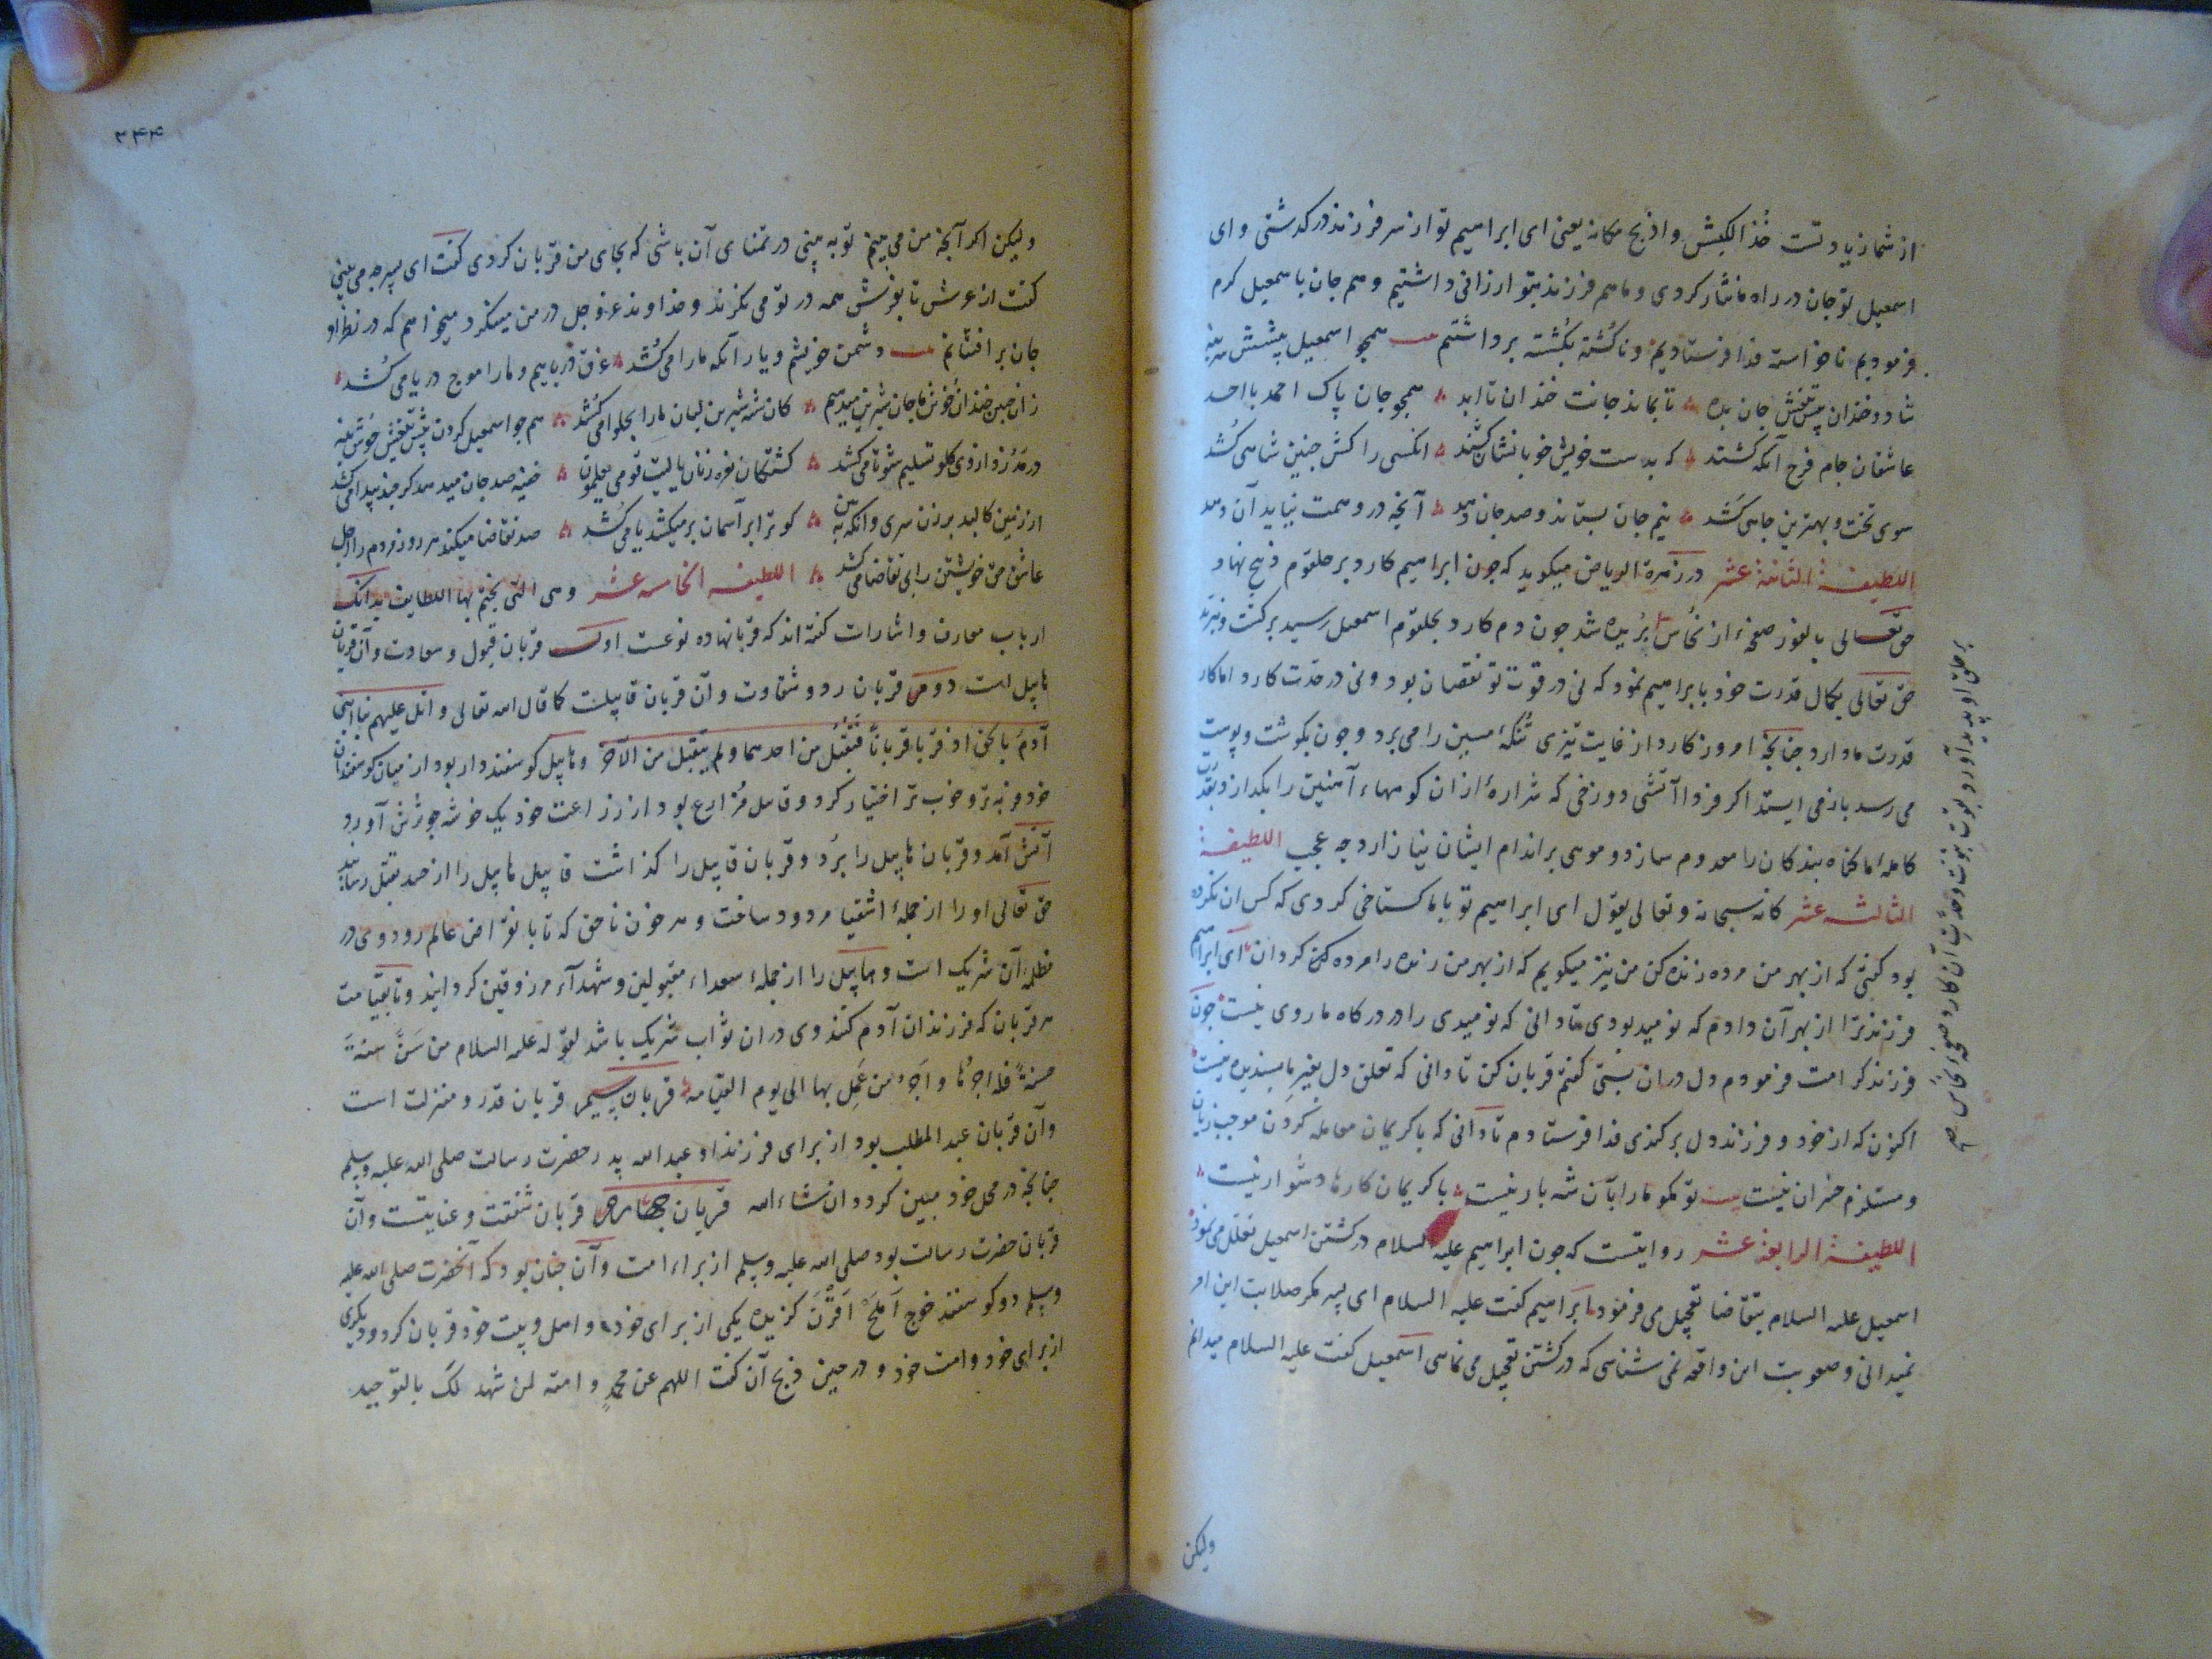 از شما زیادتست خُذ الکبش و اذبح مکانه یعنی ای ابراهیم تو از سر فرزند در گذشتی و ای
اسمعیل تو جان در راه ما نثار کردی و ما هم فرزند بتو ارزانی داشتیم و هم جان باسمعیل کرم
فرمودیم ناخواسته فدا فرستادیم و ناکشته بکشته برداشتیم همچو اسمعیل پیشش سر بنه
شاد و خندان پیش تیغش جان بده تا بماند جانت خندان تا ابد همچو جان پاک احمد با احد
عاشقان جام فرح آنکه کشند که بدست خویش خوبانشان کشند آنکسی را کش چنین شاهی کُشد
سوی تخت و بهترین جاهی کَشد نیم جان بستاند و صد جان دهد آنچه در وهمت نیاید آن دهد
اللطیفة الثانیة عشر در زهرة الریاض میگوید که چون ابراهیم کارد بر حلقوم ذبیح نهاد
حق تعالی بالفور صفحهٔ از نحاس بُریده شد چون دم کارد بحلقوم اسمعیل رسید برگشت و نبرید
حق تعالی بکمال قدرت خود بابراهیم نمود که نی در قوت تو نقصان بود و نی در حدّت کارد اما کار
قدرت ما دارد چنانچه امروز کارد از غایت تیزی تُنگهٔ مسین را می برد و چون بگوشت و پوست
می رسد باز می ایستد اگر فردا آتشی دوزخی که شرارهٔ ازان کوهها، آهنین را بگدازد بقدرت
کامله اما گناه بندگان را معدوم سازد و موی بر اندام ایشان نیازارد چه عجب اللطیفة
الثالثة عشر کانه سبحانه و تعالی یقول ای ابراهیم تو با ما گستاخی کردی که کس ان نکرده
بود گفتی که از بهر من مرده زنده کن من نیز میگویم که از بهر من زنده را مرده کن گردان ای ابراهیم
فرزند ترا از بهر آن دادم که نومید بودی تا دانی که نومیدی را در درگاه ما روی نیست چون
فرزند کرامت فرمودم دل دران بستی گفتم قربان کن تا دانی که تعلق دل بغیر ما پسندیده نیست
اکنون که از خود و فرزند دل برکندی فدا فرستادم تا دانی که با کریمان معامله کردن موجب زیان
و مستلزم خسران نیست بیت تو مگو ما را بآن شه بار نیست با کریمان کارها دشوار نیست
اللطیفة الرابعة عشر روایتست که چون ابراهیم علیه السلام در کشتن اسمعیل تعلل می نمود
اسمعیل علیه السلام بتقاضا تعجیل می فرمود ابراهیم گفت علیه السلام ای پسر مگر صلابت این امر
نمیدانی و صعوبت این واقعه نمی شناسی که در کشتن تعجیل می نمائی اسمعیل گفت علیه السلام میدانم
ولیکن
بر حلق او پدید آورد بقوت نبوت و حدّت آن کارد صفحهٔ نحاس
۲۴۴
ولیکن اگر آنچه من می بینم تو به بینی در تمنای آن باشی که بجای من قربان گردی گفت ای پسر چه می بینی
گفت از عرش تا بفرش همه در تو می نگرند و خداوند عز و جل در من مینگرد میخواهم که در نظر او
جان بر افشانم دشمن خویشیم و یار آنکه ما را می کُشد غرق دریاییم و ما را موج دریا می کُشد
زان چنین خندان و خوش ما جان شیرین میدهیم کان شه شیرین لبان ما را بحلوا می کُشد هم چو اسمعیل گردن پیش تیغش خوش بنه
در مدُزد از وی گلو تسلیم شو تا می کشد کشتگان نعره زنان یا لیت قومی یعلمون خفیه صد جان میدهد گرچه پیدا می کشد
از زمین کالبد بر زن سری وانگه ببین کو ترا بر آسمان بر میکشد یا می کُشد صد تقاضا میکند هر روز مردم را اجل
عاشق حق خویشتن را بی تقاضا می کشد اللطیفة الخامسه عشر و هی التی یختم بها اللطایف بدانک
ارباب معارف و اشارات گفته اند که قربانها ده نوعست اول قربان قبول و سعادت و آن قربان
هابیل است دوم قربان رد و شقاوت و آن قربان قابیلست کما قال الله تعالی و اتل علیهم نبا ابنی
آدم بالحق اذ قربا قرباناً فتُقُبّل من احدهما و لم یتقبل من الآخر و هابیل گوسفنددار بود از میان گوسفندان
خود فربه تر و خوب تر اختیار کرد و قابیل مُزارع بود از زراعت خود یک خوشه جو ترش آورد
آتش آمد و قربان هابیل را ببرُد و قربان قابیل را گذاشت قابیل هابیل را از حسد بقتل رسانید
حق تعالی او را از جملهٔ اشقیا مردود ساخت و هر خون ناحق که تا بانقراض عالم رود وی در
مظلمهٔ آن شریک است و هابیل را از جملهٔ سعداء مقبولین و شهدآء مرزوقین گردانید و تا بقیامت
هر قربان که فرزندان آدم کنند وی دران ثواب شریک باشد لقوله علیه السلام من سَنَّ سنةً
حسنةً فله اجرُها و اجر من عَمِل بها الی یوم القیامه قربان سیم قربان قدر و منزلت است
و آن قربان عبد المطلب بود از برای فرزند او عبد الله پدر حضرت رسالت صلی الله علیه وسلم
چنانچه در محل خود مبین گردد ان شاء الله قربان چهارم قربان شفقت و عنایتست و آن
قربان حضرت رسالت بود صلی الله علیه وسلم از براء امت و آن چنان بود که آنحضرت صلی الله علیه
وسلم دو گوسفند خوج اَملَح اَقرَن گزیده یکی از برای خود و اهل و بیت خود قربان کرد و دیگری
از برای خود و امت خود و در حین ذبح آن گفت اللهم عن محمدٍ و امته لمن شهد لک بالتوحید